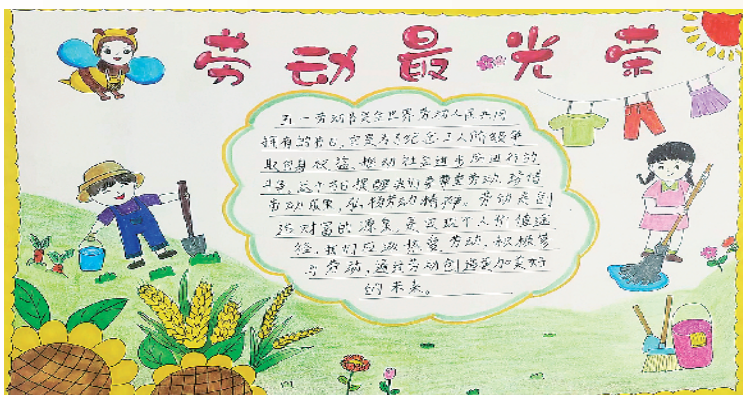 劳动最光荣
五一劳动节是全世界劳动人民共同
拥有的节日,它是为了纪念工人阶级争
取自身权益、推动社会进步所进行的
斗争。这个节日提醒我们要尊重劳动、珍惜
劳动成果、弘扬劳动精神。劳动是创
造财富的源泉,是实现个人价值途
径,我们应该热爱劳动、积极参
与劳动,通过劳动创造更加美好
的未来。